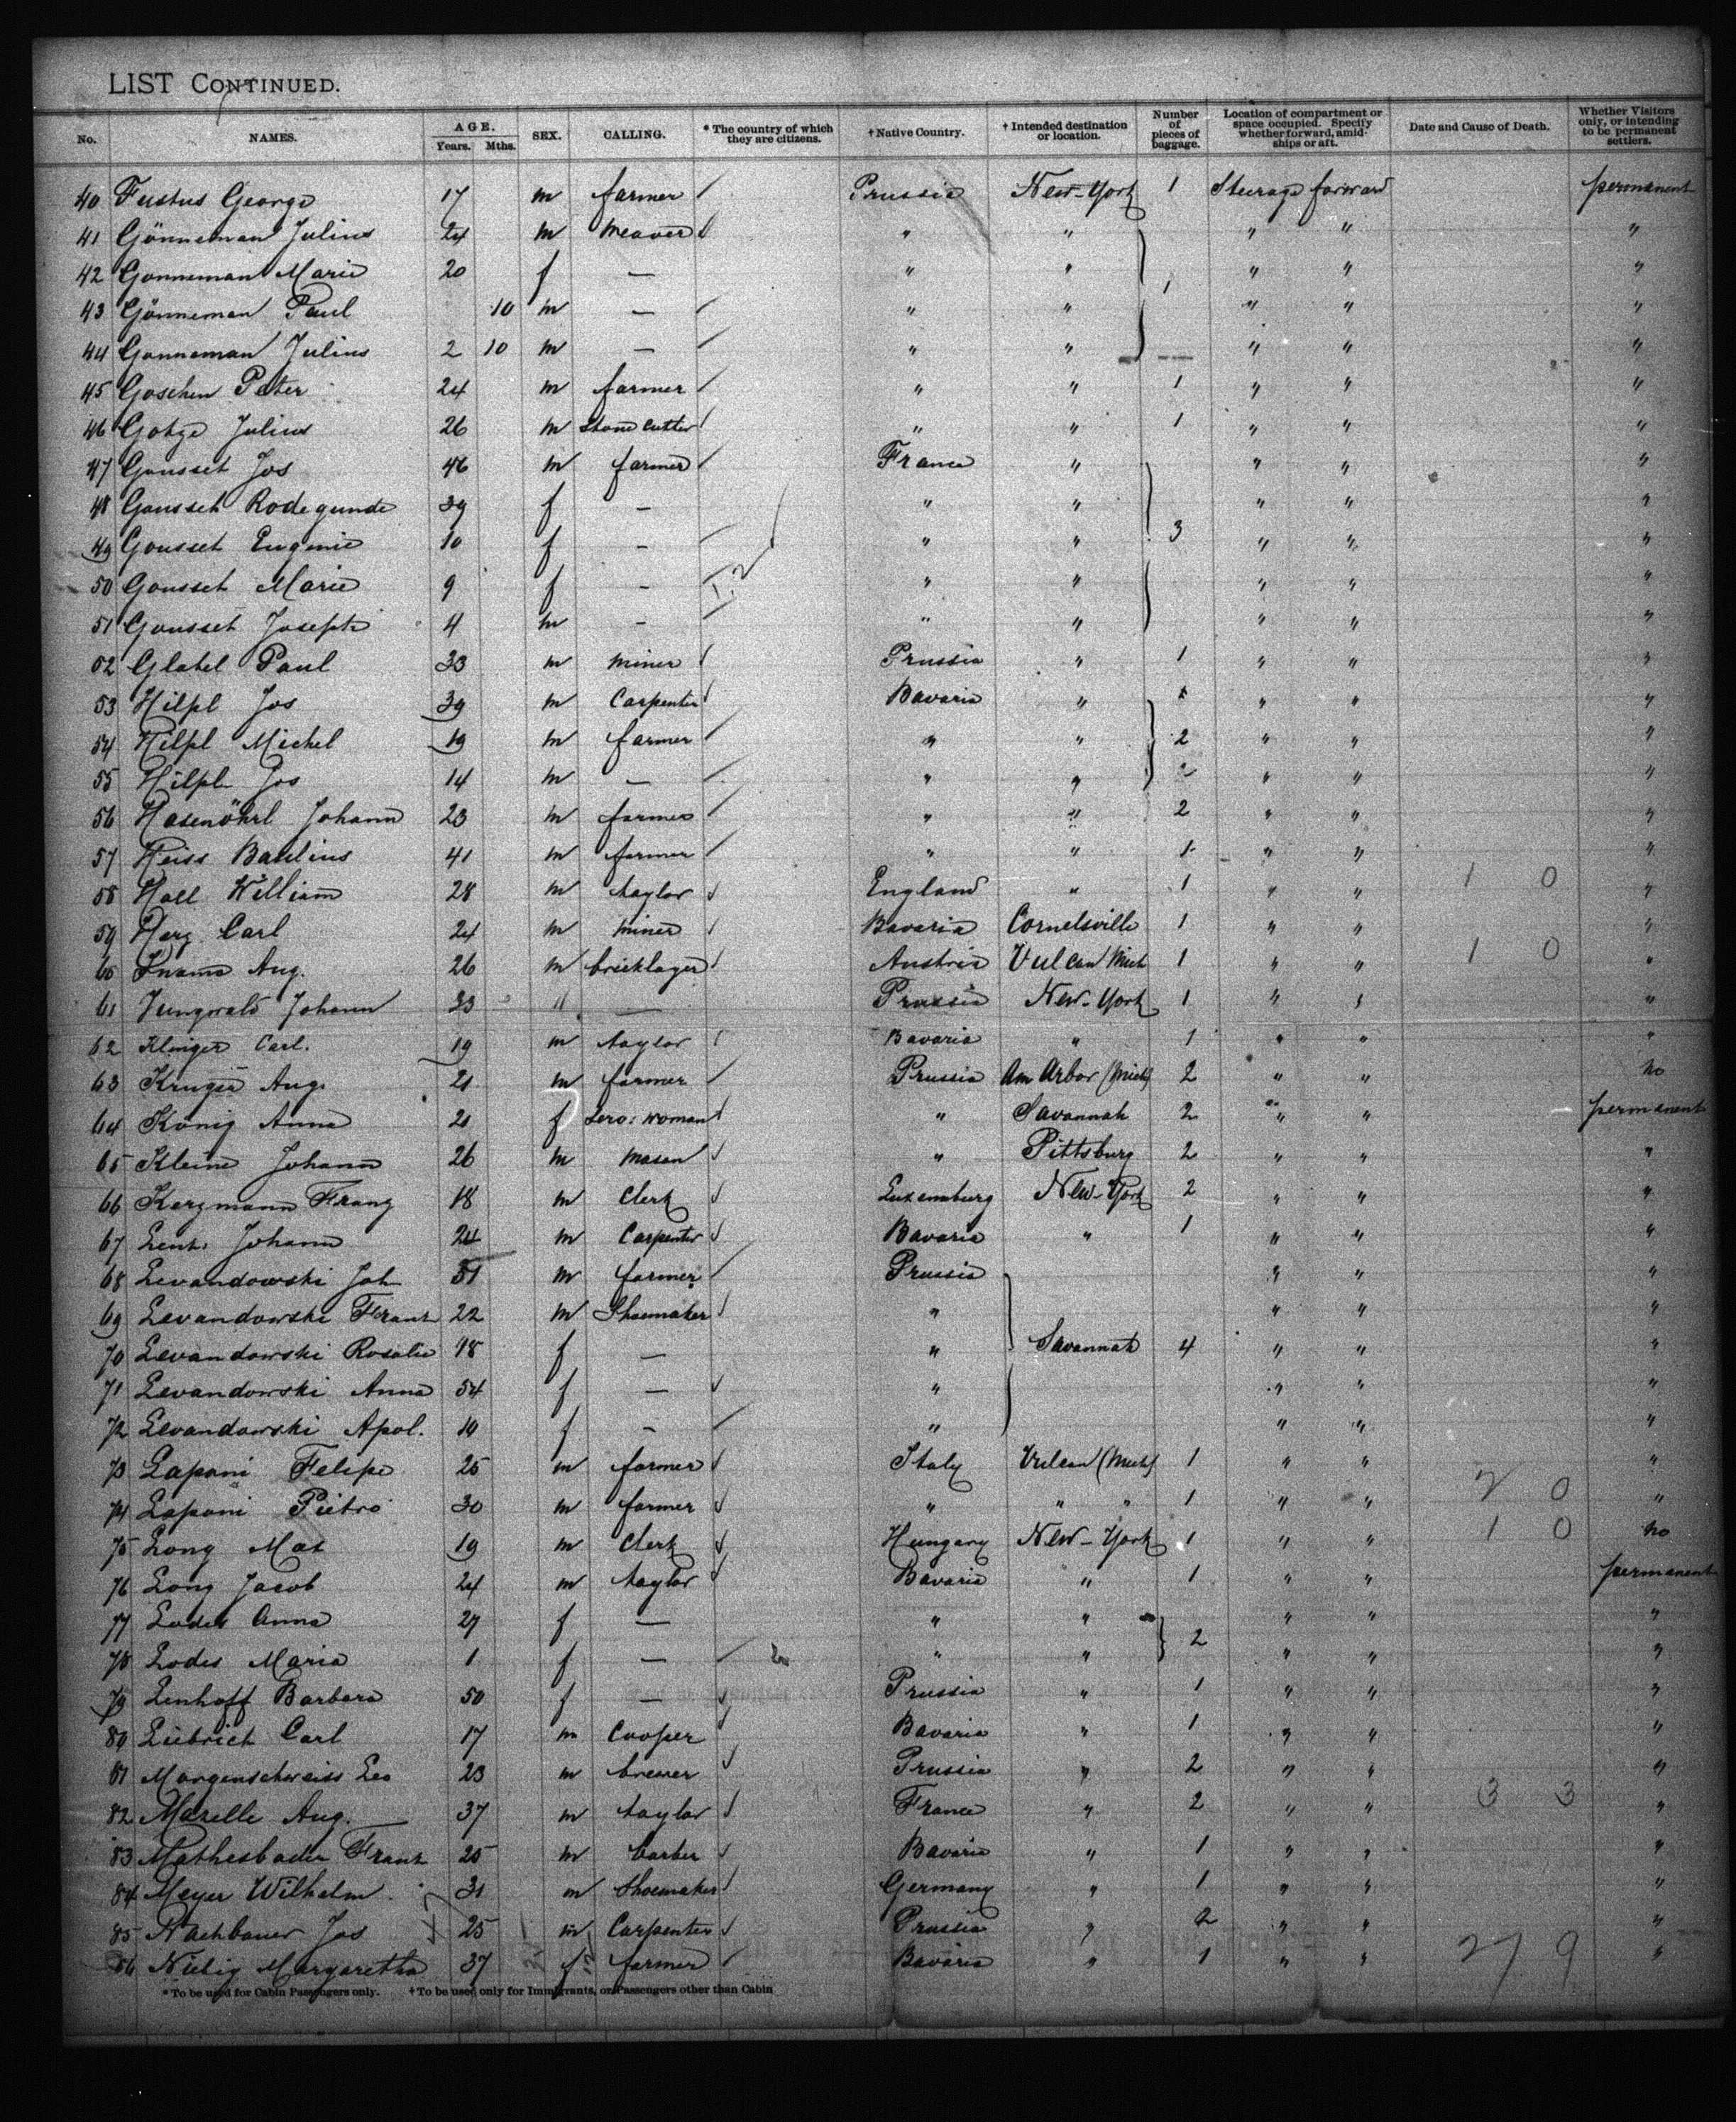 LIST CONTINUED.
No. NAMES. AGE. Years. Mths. SEX. CALLING. * The country of which they are citizens. † Native Country. † Intended destination or location. Number of pieces of baggage. Location of compartment or space occupied. Specify whether forward, amidships or aft. Date and Cause of Death. Whether Visitors only, or intending to be permanent settlers.
40 Fustus George 17 m farmer Prussia New-York 1 Steerage forward permanent
41 Gönneman Julius 24 m Weaver " " " " "
42 Gonneman Marie 20 f — " " " " "
43 Gönneman Paul 10 m — " " 1 " " "
44 Gonneman Julius 2 10 m — " " " " "
45 Goschen Peter 24 m farmer " " 1 " " "
46 Gotze Julius 26 m Stone cutter " " 1 " " "
47 Gousset Jos 46 m farmer France " " " "
48 Gousset Rodegunde 39 f - " " " " "
49 Gousset Eugenie 10 f - " " 3 " " "
50 Gousset Marie 9 f - " " " " "
51 Gousset Joseph 4 m - " " " " "
52 Glatel Paul 33 m miner Prussia " 1 " " "
53 Hilpl Jos 39 m Carpenter Bavaria " " " "
54 Hilpl Michel 19 m farmer " " 2 " " "
55 Hilpl Jos 14 m — " " 2 " " "
56 Hasenöhrl Johann 23 m farmer " " 2 " " "
57 Heiss 41 m farmer " " 1 " " "
58 Hall William 28 m taylor England " 1 " " 1 0 "
59 Herz Carl 24 m miner Bavaria Cornelsville 1 " " "
60 Aug. 26 m bricklayer Austria Vulcan Mich 1 " " 1 0 "
61 Jungwald Johann 23 " — Prussia New-York 1 " " "
62 Klinger Carl. 19 m taylor Bavaria " 1 " " "
63 Kruger Aug. 21 m farmer Prussia Am Arbor (Mich) 2 " " no
64 König Anna 21 f woman " Savannah 2 " " permanent
65 Kleine Johann 26 m mason " Pittsburg 2 " " "
66 Kerzmann Franz 18 m Clerk Luxemburg New-York 2 " " "
67 Lent Johann 24 m Carpenter Bavaria " 1 " " "
68 Levandowski Joh 51 m farmer Prussia " " "
69 Levandowski Frant 22 m Shoemaker " " " "
70 Levandowski Rosalie 18 f — " Savannah 4 " " "
71 Levandowski Anna 54 f — " " " "
72 Levandowski Apol. f — " " " "
73 Laponi Felipe 25 m farmer Italy Vulcan (Mich) 1 " " "
74 Laponi Pietro 30 m farmer " " " 1 " " 2 0 "
75 Long Mat 19 m Clerk Hungary New-York 1 " " 1 0 no
76 Long Jacob 24 m taylor Bavaria " 1 " " permanent
77 Lodes Anna 27 f — " " " " "
78 Lodes Maria 1 f — " " 2 " " "
79 Lenhoff Barbara 50 f — Prussia " 1 " " "
80 Liebrich Carl 17 m Cooper Bavaria " 1 " " "
81 Morgenschweiss Leo 23 m brewer Prussia " 2 " " "
82 Mazelle Aug. 37 m taylor France " 2 " " 3 3 "
83 Mathesbader Frant 25 m barber Bavaria " 1 " " "
84 Meyer Wilhelm 31 m Shoemaker Germany " 1 " " "
85 Nachbauer Jos 25 m Carpenter Prussia " 2 " " "
86 Niebig Margaretha 37 f farmer Bavaria " 1 " " 27 9 "
* To be used for Cabin Passengers only. † To be used only for Immigrants, or Passengers other than Cabin